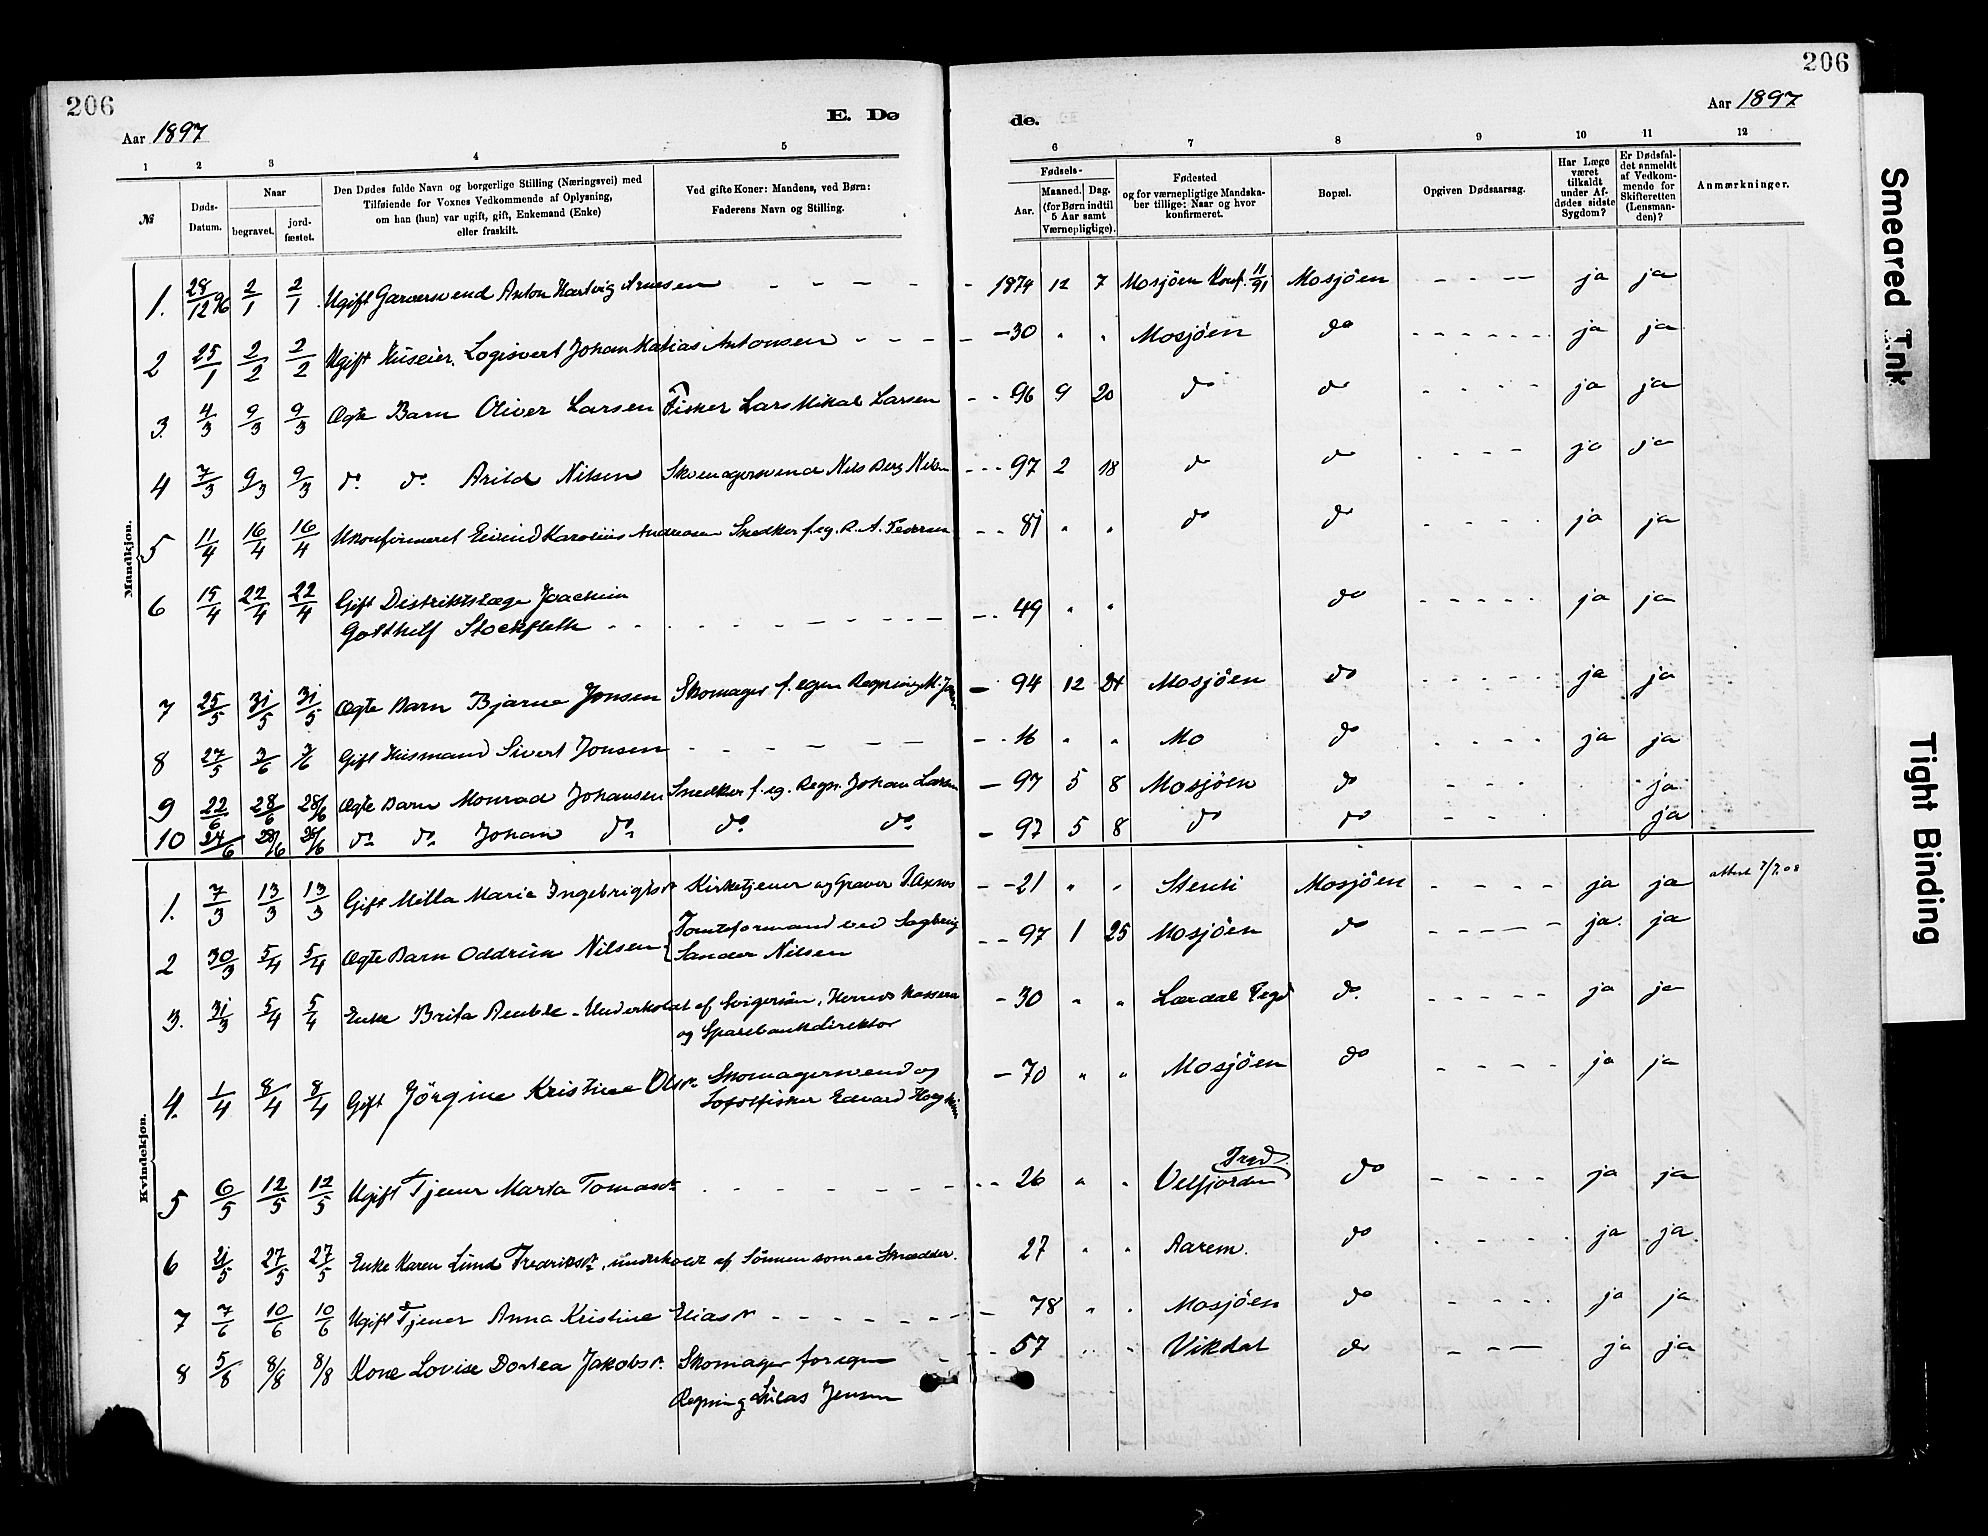 206
206
Aar 1897
E. Dø
de.
Aar 1897
1 2 3 4 5 6 7 8 9 10 11 12
№
Døds-Datum.
Naar
begravet.
jord-fæstet.
Den Dødes fulde Navn og borgerlige Stilling (Næringsvei) med
Tilføiende for Voxnes Vedkommende af Oplysning,
om han (hun) var ugift, gift, Enkemand (Enke)
eller fraskilt.
Ved gifte Koner: Mandens, ved Børn:
Faderens Navn og Stilling.
Fødsels-
Aar. Maaned. Dag.
(for Børn indtil
5 Aar samt
Værnepligtige).
Fødested
og for værnepligtige Mandska-
ber tillige: Naar og hvor
konfirmeret.
Bopæl.
Opgiven Dødsaarsag.
Har Læge
været
tilkaldt
under Af-
dødes sidste
Sygdom?
Er Dødsfal-
det anmeldt
af Vedkom-
mende for
Skifteretten
(Lensman-
den)?
Anmærkninger.
Mandkjøn.
1. 28/12 96 2/1 2/1 Ugift Garversvend Anton Hartvig Arnesen - - - - - 1874 12 7 Mosjöen Konf. 11/91 Mosjöen - - - ja ja
2 25/1 2/2 2/2 Ugift Huseier, Logisvert Johan Matias Antonsen - - - - 30 " " Mosjöen do - - - - - - ja ja
3. 4/3 9/3 9/3 Ægte Barn Oliver Larsen Fisker Lars Mikal Larsen - - 96 9 20 do do - - - - ja ja
4 7/3 9/3 9/3 do do Arild Nilsen Skomagersvend Nils Berg Nilsen - - - 97 2 18 do do - - - - ja ja
5 11/4 16/4 16/4 Ukonfirmeret Eivind Karolius Andreasen Snedker f. eg. R. A. Pedersen - - 81 " " do do - - - - ja ja
6 15/4 22/4 22/4 Gift Distriktslæge Joachim
Gotthilf Stockfleth - - - - - - - - 49 " " do - - - - - ja ja
7 25/5 31/5 31/5 Ægte Barn Bjarne Jonsen Skomager f. egen Regning M. - 94 12 24 Mosjöen do - - - - - ja ja
8 27/5 3/6 3/6 Gift Husmand Sivert Jonsen - - - - - - - 16 " " Mo do - - - - ja ja
9 22/6 28/6 28/6 Ægte Barn Monrad Johansen Snedker f. eg. Regn. Johan Larsen - 97 5 8 Mosjöen do - - - - ja
10 24/6 28/6 28/6 do do Johan do do do - 97 5 8 do do - - - ja
Kvindekjøn.
1. 7/3 13/3 13/3 Gift Milla Marie Ingebrigtsdr Kirketjener og Graver - - 21 " " Mosjöen - - - - ja ja 7/7 08
2 30/3 5/4 5/4 Ægte Barn Oddrun Nilsen { Tomteformand ved Sagbrug
Sander Nilsen - - 97 1 25 Mosjöen do - - - - - ja. ja
3. 31/3 5/4 5/4 Enke Brita - Underholdt af Svigersön, Herreds Kasserer
og Sparebankdirektor - 30 " " Lærdal do. - - - - - ja ja
4. 1/4 8/4 8/4 Gift Jörgine Kristine Olsdr. Skomagersvend og
Lofotfisker Edvard - 70 " " Mosjöen do - - - - ja ja
5 6/5 12/5 12/5 Ugift Tjener Marta Tomasdr - - - - - - - - 26 " " Velfjorden do - - - - ja ja
6 21/5 27/5 27/5 Enke Karen Lund Fredriksdr, underholdt af Sönnen som er Skrædder. 27 " " Aarem. do - - - - ja ja.
7 7/6 10/6 10/6 Ugift Tjener Anna Kristine Eliasdr - - - - - - - 78 " " Mosjöen do - - - - ja ja
8 5/8 8/8 8/8 Kone Lovise Dortea Jakobsdr. Skomager for egen
Regning Jensen - - 57 " " Vikdal do - - - ja ja
Smeared Ink
Tight Binding